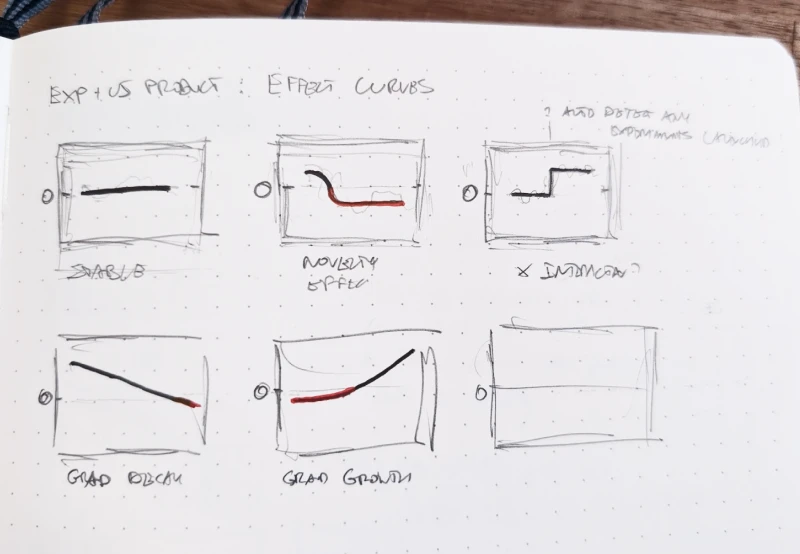 EXP + US PRODUCT : EFFECT CURVES
? AUTO DETECT ANY
EXPERIMENTS LAUNCHED
0
0
0
STABLE
NOVELTY
EFFECT
X INTERACTION?
0
0
0
GRAD DECAY
GRAD GROWTH